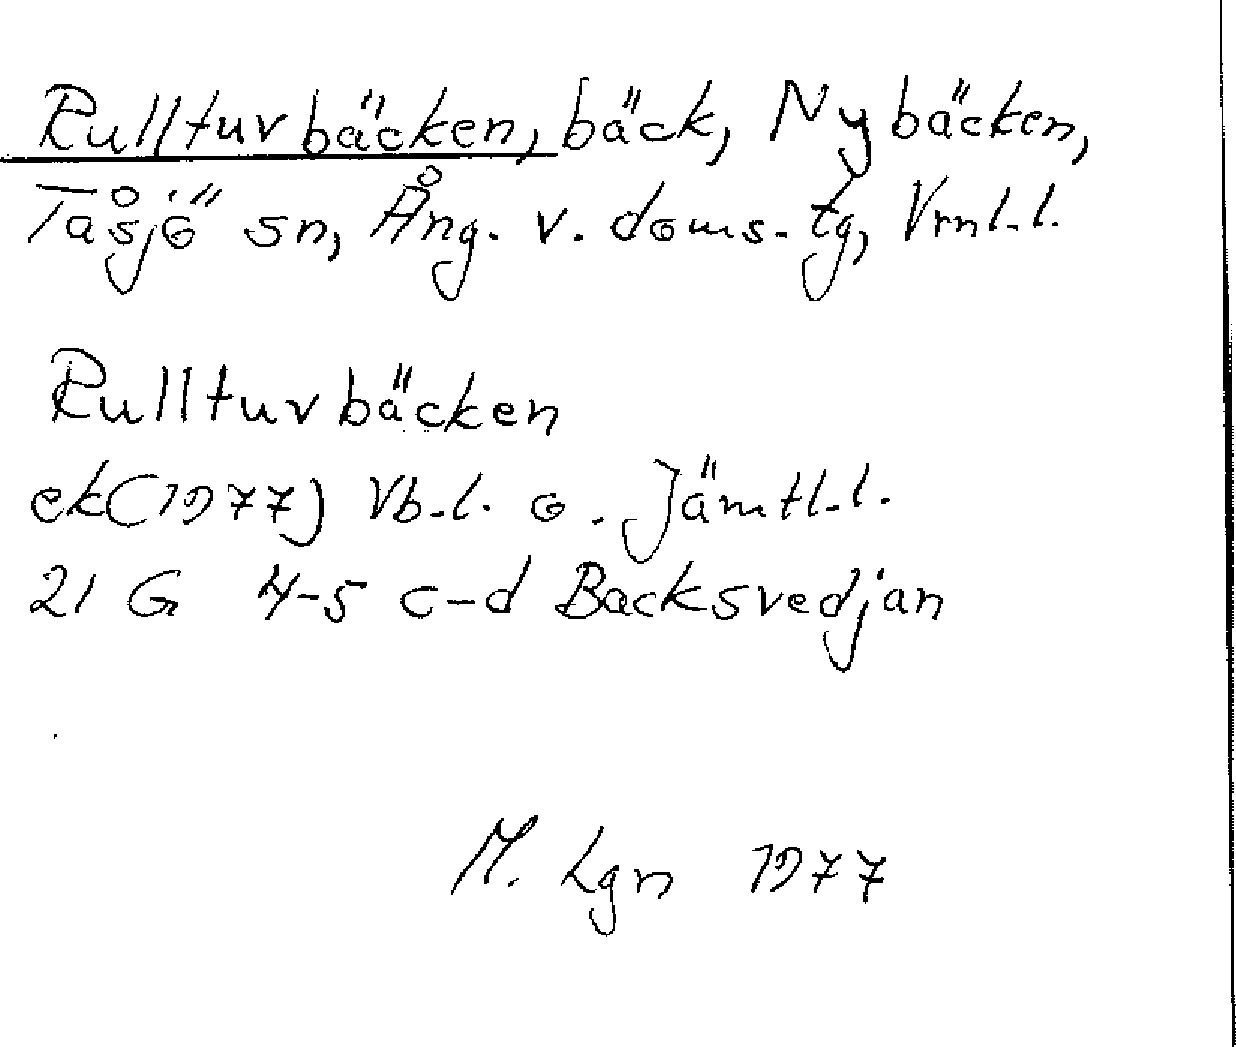 Rullturvbäcken, bäck, Nybäcken,
Tåsjö sn, Ång. v. doms. tg, Vrnl.l.
Rullturvbäcken
ek(1977) Vb.l. o. Jämtl.l.
21 G 4-5 c-d Backsvedjan
M. Lgn 1977